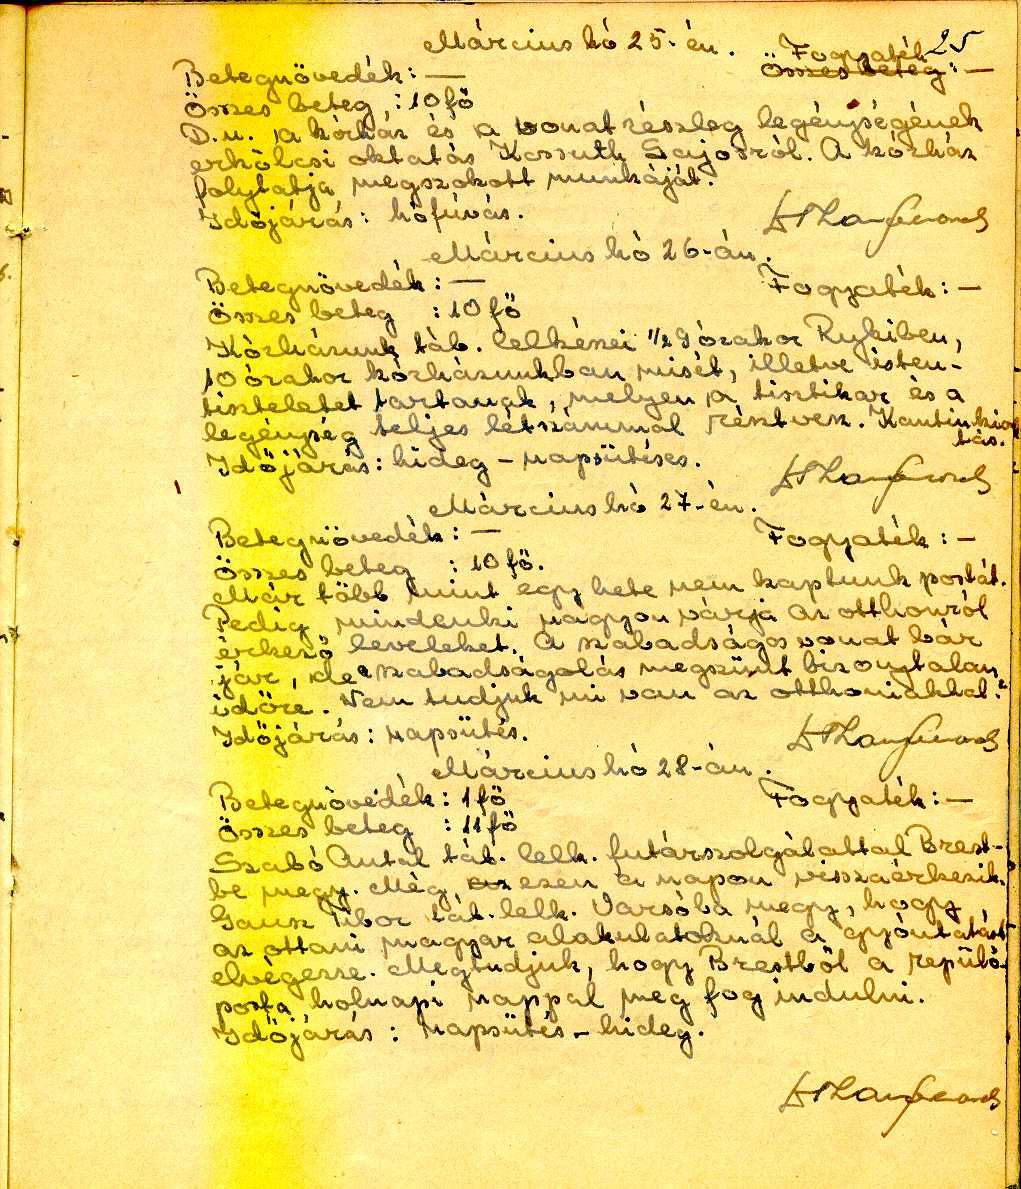 25
Március hó 25-én.
Betegnövedék: — Fogyaték
Összes beteg: —
Összes beteg : 10 fő
D.u. a kórház és a vonatrészleg legénységének
erkölcsi oktatás Kossuth Lajosról. A kórház
folytatja megszokott munkáját.
Időjárás: hófúvás.
Március hó 26-án.
Betegnövedék: — Fogyaték: —
Összes beteg : 10 fő
Kórházunk táb. lelkészei 1/2 9 órakor Rykiben,
10 órakor kórházunkban misét, illetve isten-
tiszteletet tartanak, melyen a tisztikar és a
legénység teljes létszámmal résztvesz. Kantin kiosz
tás.
Időjárás: hideg – napsütéses.
Március hó 27-én.
Betegnövedék: — Fogyaték: —
Összes beteg : 10 fő.
Már több mint egy hete nem kaptunk postát.
Pedig mindenki nagyon várja az otthonról
érkező leveleket. A szabadságos vonat bár
jár, de a szabadságolás megszünt bizonytalan
időre. Nem tudjuk mi van az otthoniakkal?
Időjárás: napsütés.
Március hó 28-án.
Betegnövedék: 1 fő Fogyaték: —
Összes beteg : 11 fő
Szabó Antal táb. lelk. futárszolgálattal Brest-
be megy. Még ezen a napon visszaérkezik.
Gausz Tibor táb. lelk. Varsóba megy, hogy
az ottani magyar alakulatoknál a gyóntatást
elvégezze. Megtudjuk, hogy Brestből a repülő-
posta holnapi nappal meg fog indulni.
Időjárás: napsütés – hideg.